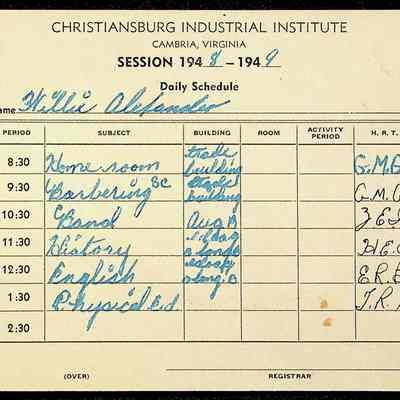 CHRISTIANSBURG INDUSTRIAL INSTITUTE
CAMBRIA, VIRGINIA
SESSION 194 8 — 194 9
Daily Schedule
ame Willie Alexander
PERIOD SUBJECT BUILDING ROOM ACTIVITY PERIOD H. R. T.
8:30 Home room trade building G.M.
9:30 Barbering SC trade building G.M.
10:30 Band Aud
11:30 History
12:30 English E.R.
1:30 Physical Ed
2:30
(OVER) REGISTRAR